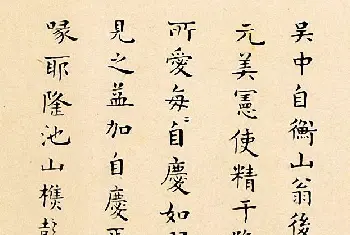 吳中自衡山翁後
元美憲使精于臨
所愛每自慶如
見之益加自慶
喙耶隆池山樵彭